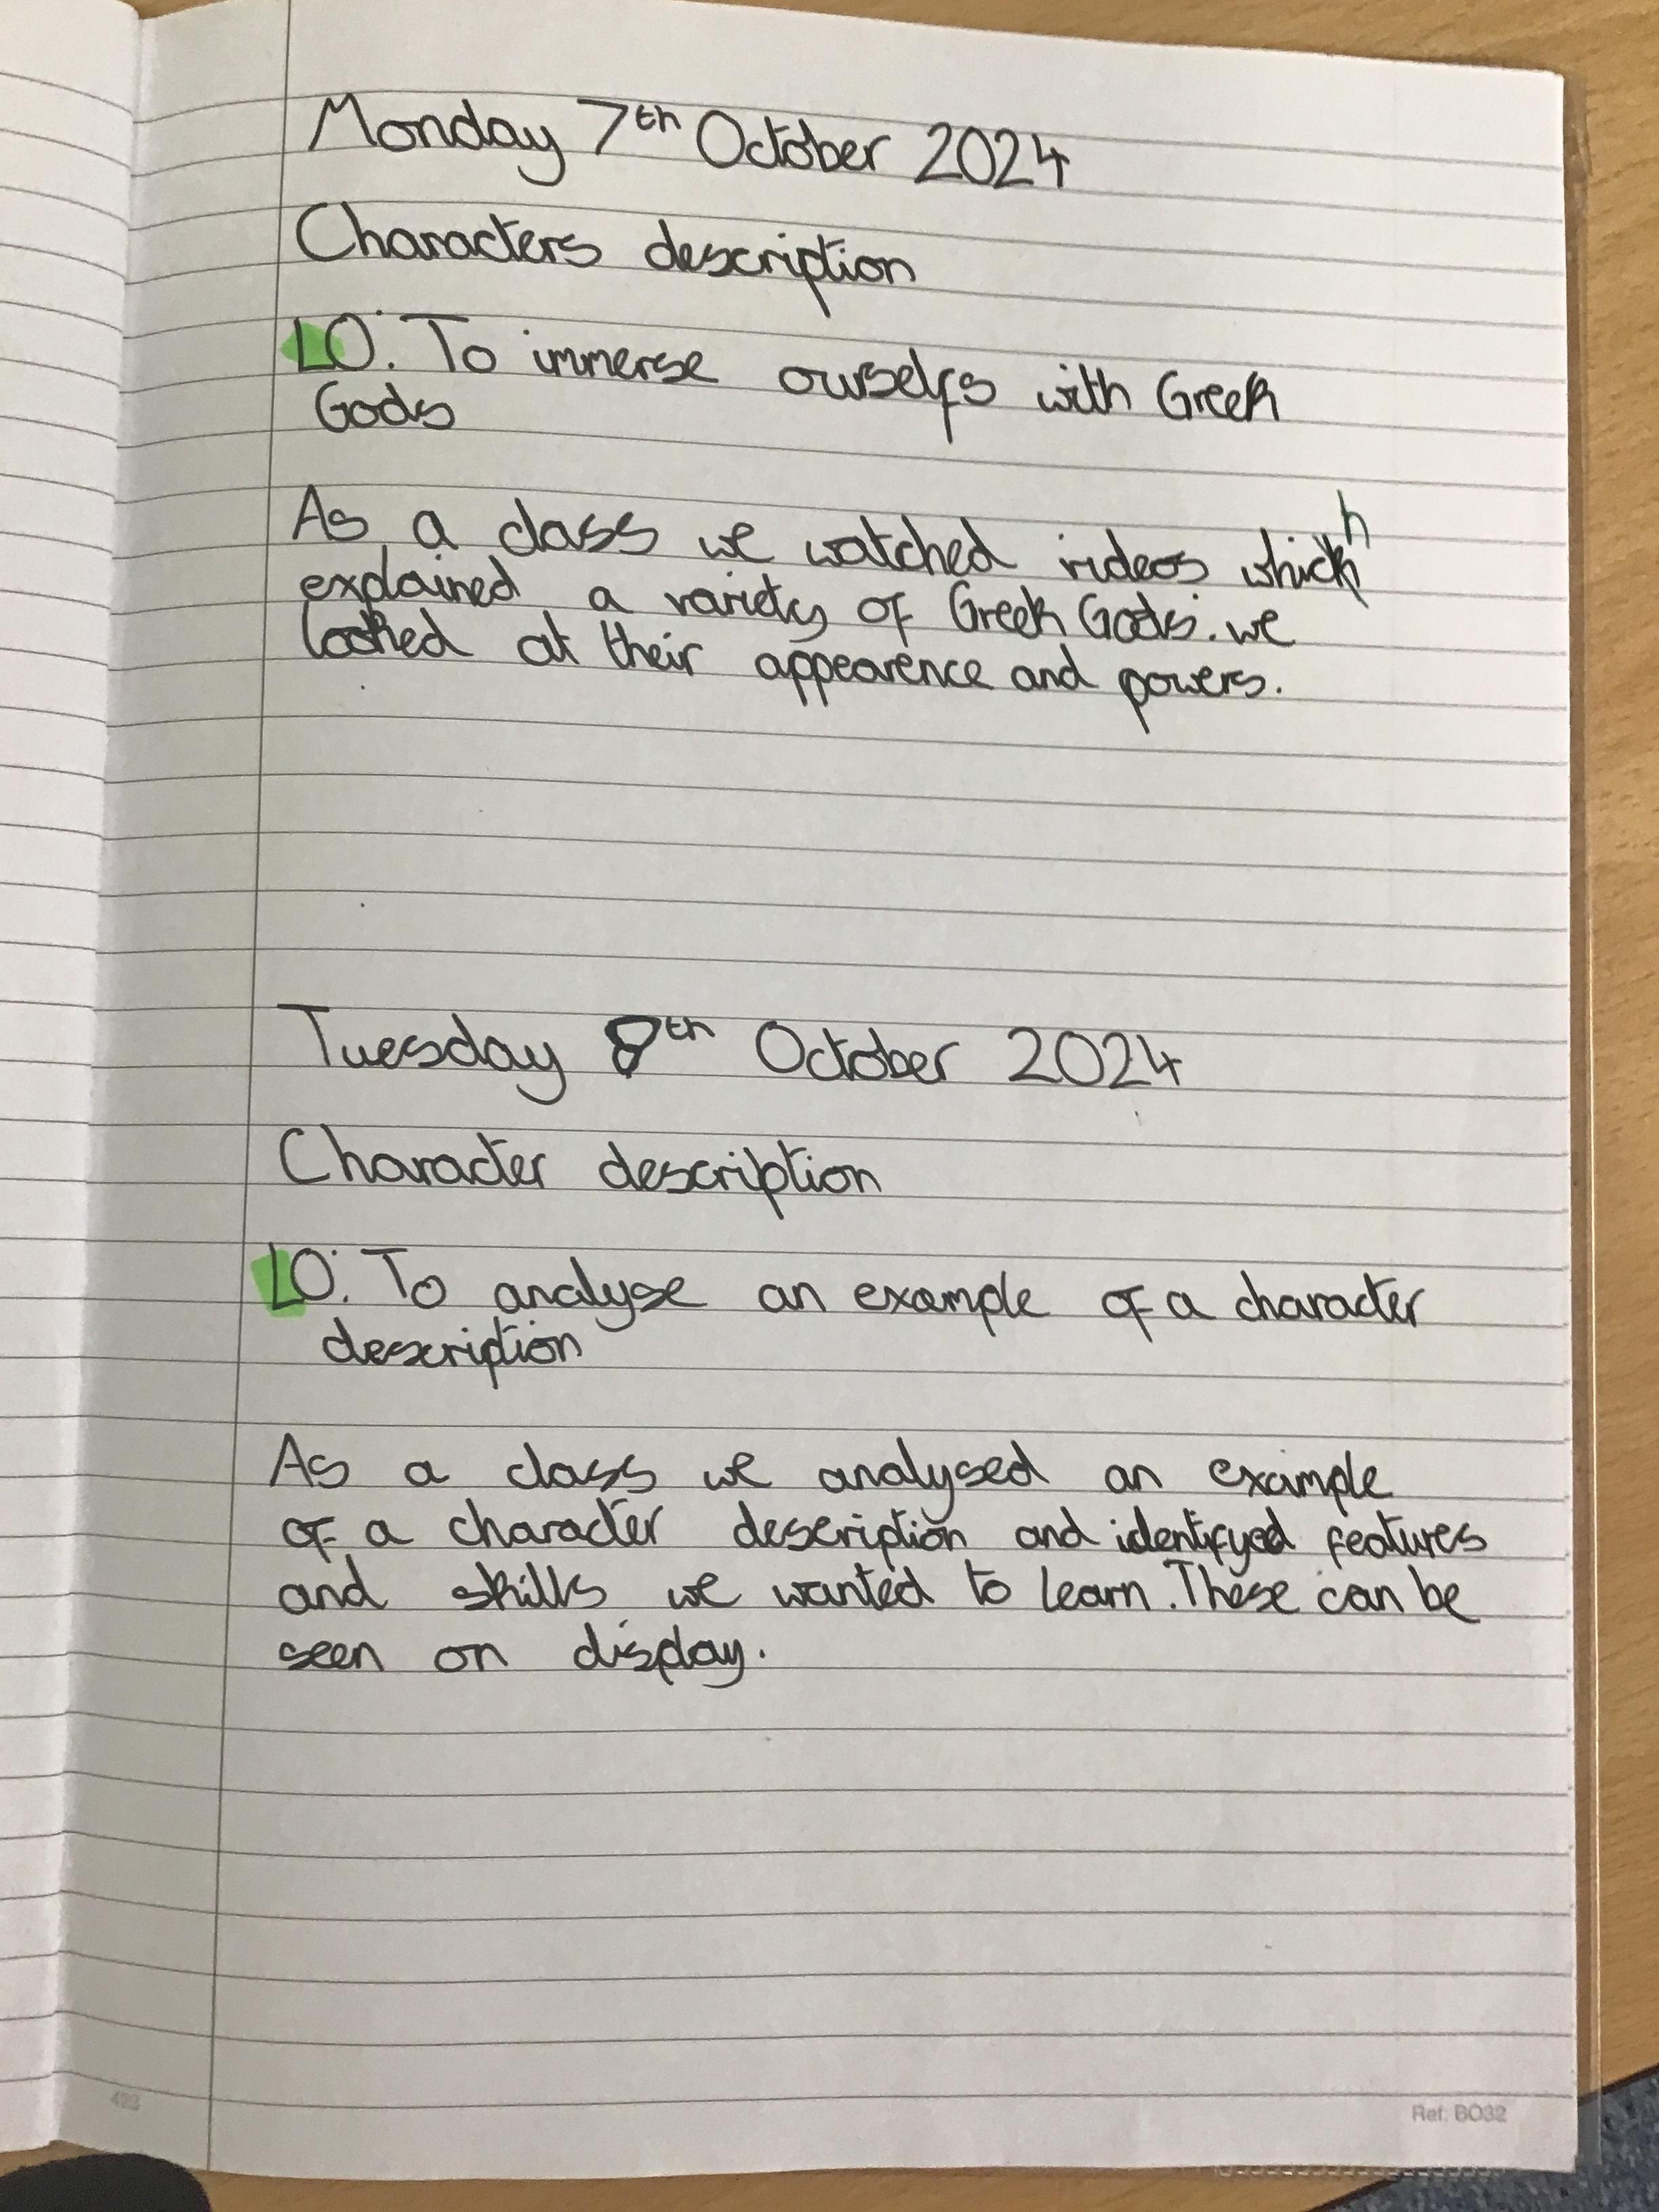 Monday 7th October 2024
Characters description
LO: To immerse ourselfs with Greek
Gods
As a class we watched videos which
explained a variety of Greek Gods. we
looked at their appearence and powers.
Tuesday 8th October 2024
Character description
LO: To analyse an example of a character
description
As a class we analysed an example
of a character description and identifyed features
and skills we wanted to learn. These can be
seen on display.
423
Ref. BO32